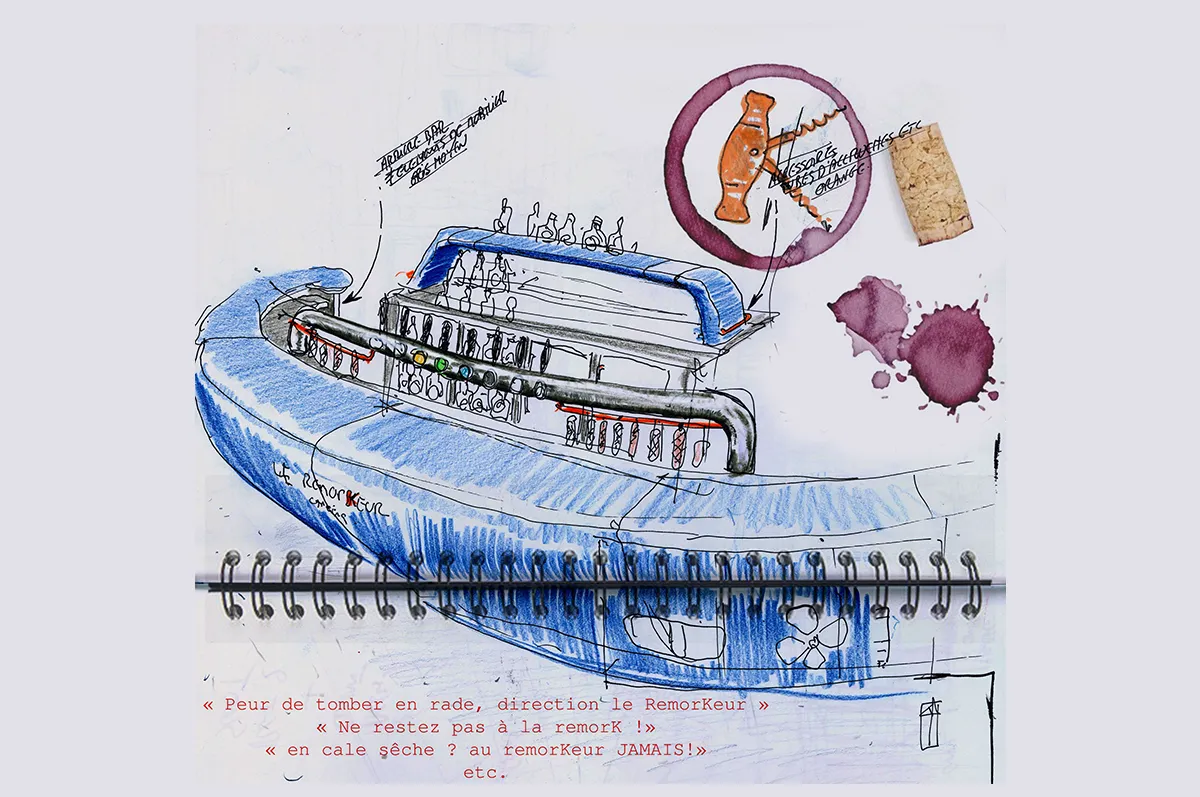 ARRIERE BAR
7 ELEMENTS DE MOBILIER
GRIS MOYEN
ACCESSOIRES
D'ACCROCHES ETC
ORANGE
LE REMORKEUR
« Peur de tomber en rade, direction le RemorKeur »
« Ne restez pas à la remorK !»
« en cale sêche ? au remorKeur JAMAIS!»
etc.